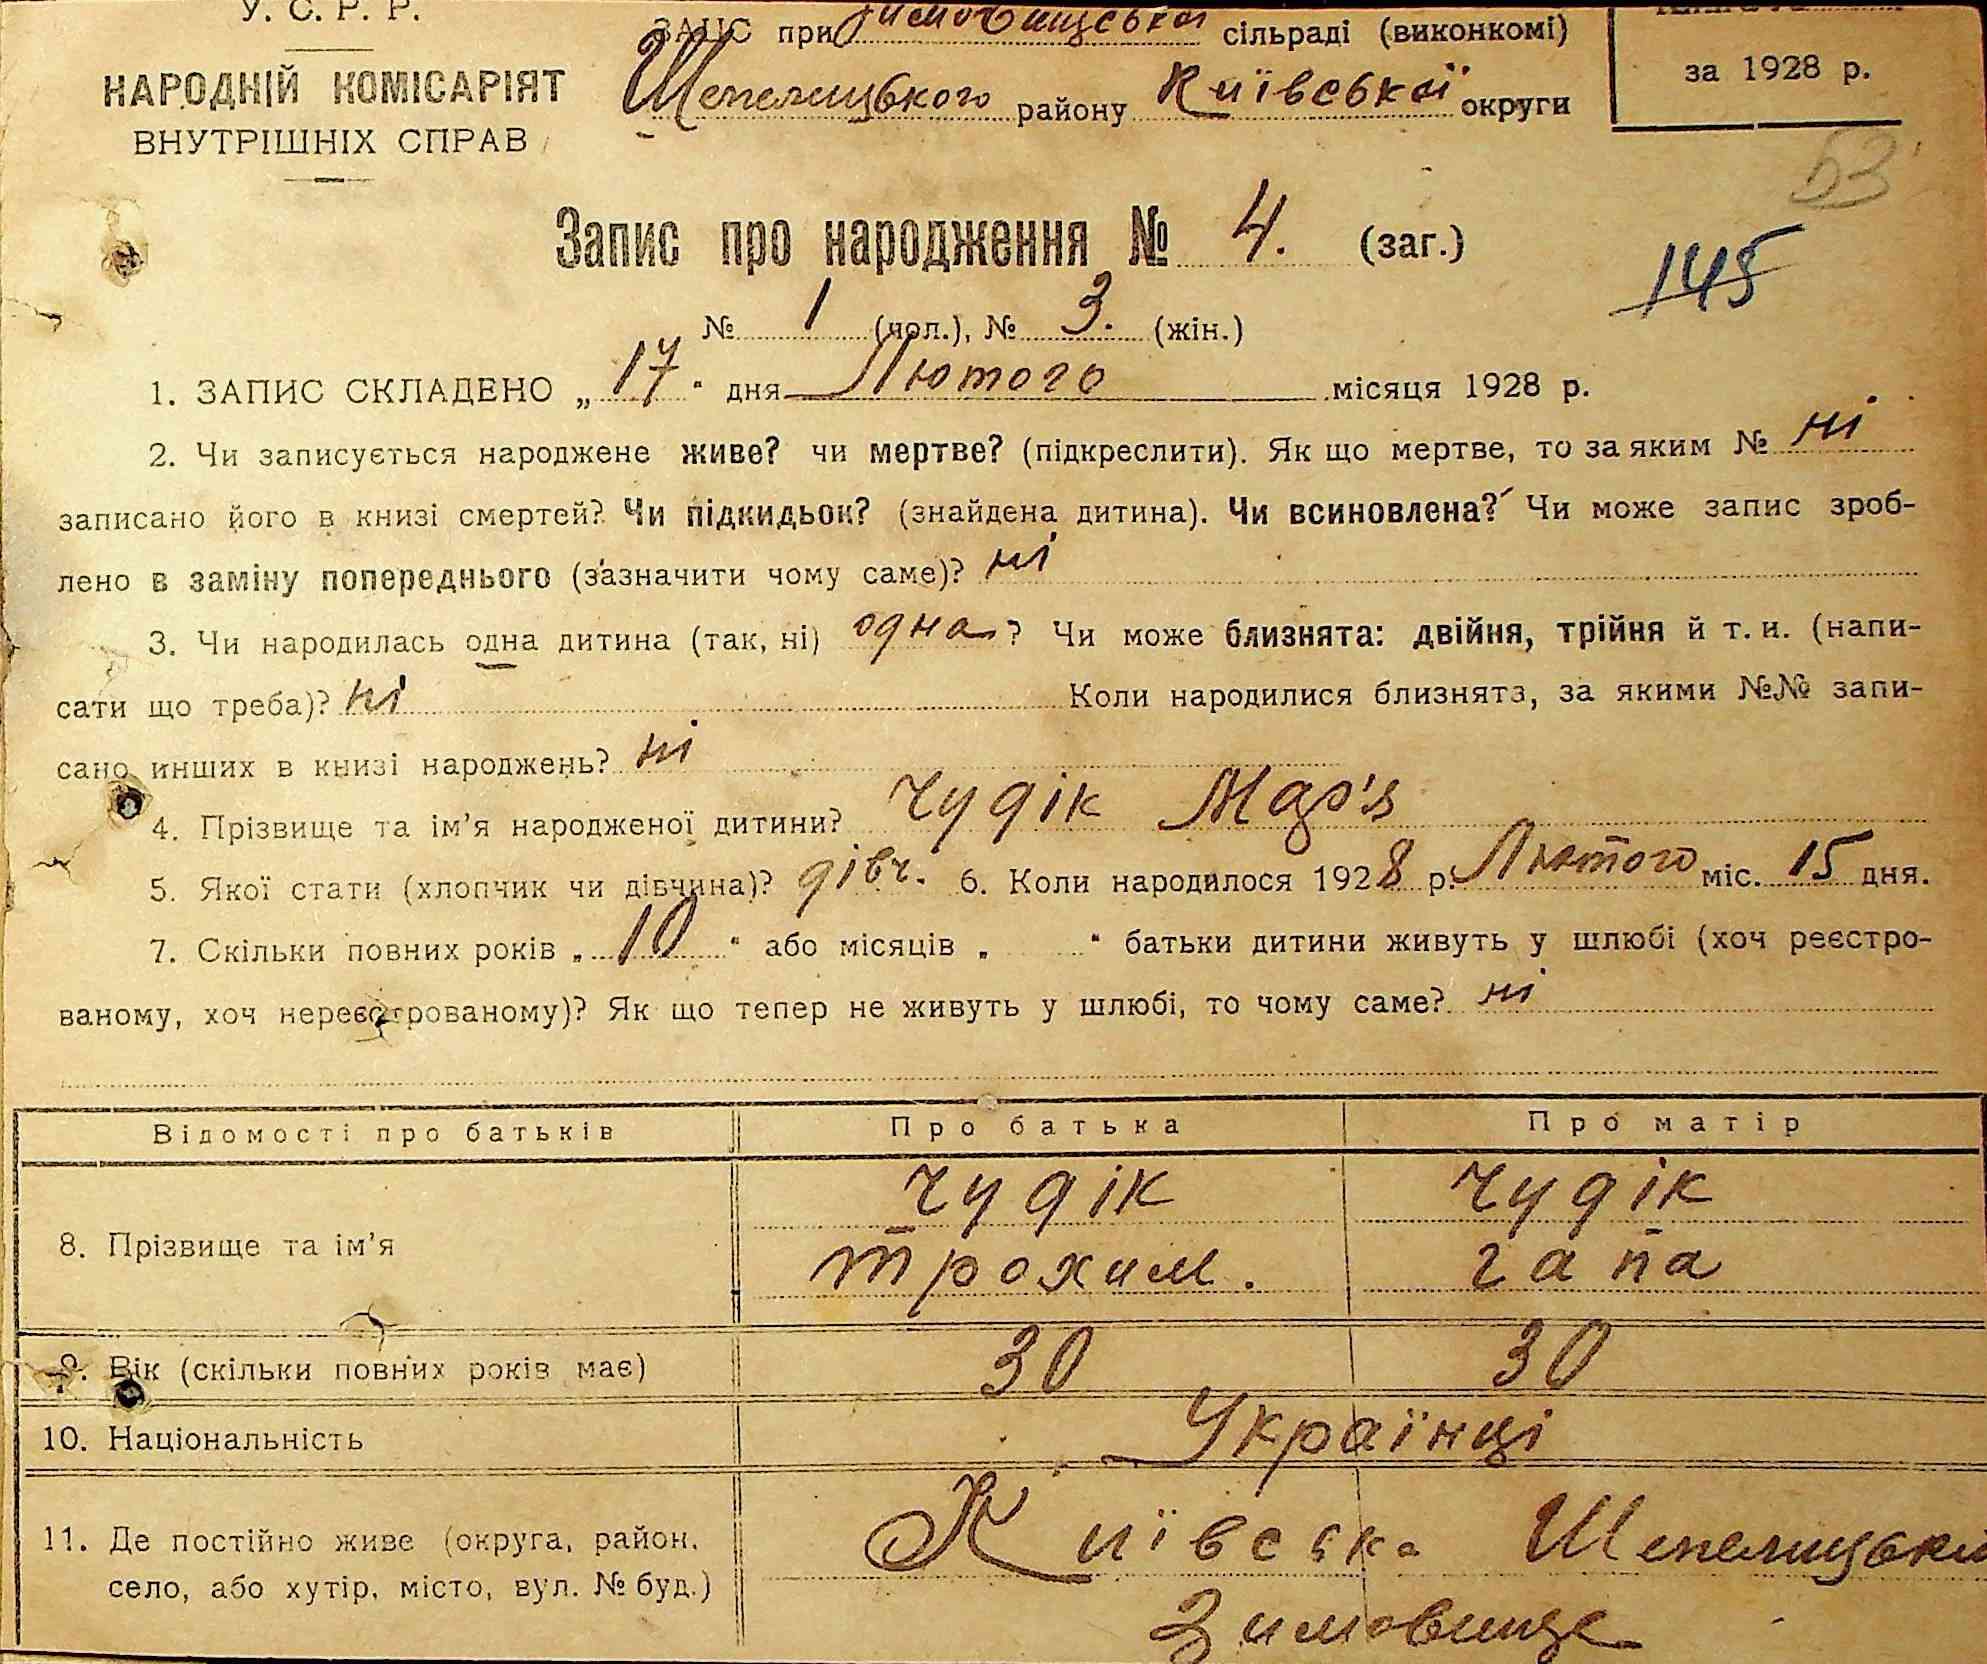 У. С. Р. Р.
НАРОДНІЙ КОМІСАРІЯТ
ВНУТРІШНІХ СПРАВ
ЗАПС при Зимовищській сільраді (виконкомі)
Шепелицького району Київської округи
за 1928 р.
53
145
Запис про народження № 4. (заг.)
№ 1 (чол.), № 3. (жін.)
1. ЗАПИС СКЛАДЕНО „ 17 “ дня Лютого місяця 1928 р.
2. Чи записується народжене живе? чи мертве? (підкреслити). Як що мертве, то за яким № ні
записано його в книзі смертей? Чи підкидьок? (знайдена дитина). Чи всиновлена? Чи може запис зроб-
лено в заміну попереднього (зазначити чому саме)? ні
3. Чи народилась одна дитина (так, ні) одна ? Чи може близнята: двійня, трійня й т. и. (напи-
сати що треба)? ні Коли народилися близнята, за якими №№ запи-
сано инших в книзі народжень? ні
4. Прізвище та ім'я народженої дитини? Чудік Мар'я
5. Якої стати (хлопчик чи дівчина)? дівч. 6. Коли народилося 1928 р. Лютого міс. 15 дня.
7. Скільки повних років „ 10 “ або місяців „ “ батьки дитини живуть у шлюбі (хоч реєстро-
ваному, хоч нереєстрованому)? Як що тепер не живуть у шлюбі, то чому саме? ні
Відомості про батьків Про батька Про матір
8. Прізвище та ім'я Чудік Трохим. Чудік гапа
9. Вік (скільки повних років має) 30 30
10. Національність Українці
11. Де постійно живе (округа, район, Київська Шепелицький
село, або хутір, місто, вул. № буд.) Зимовище